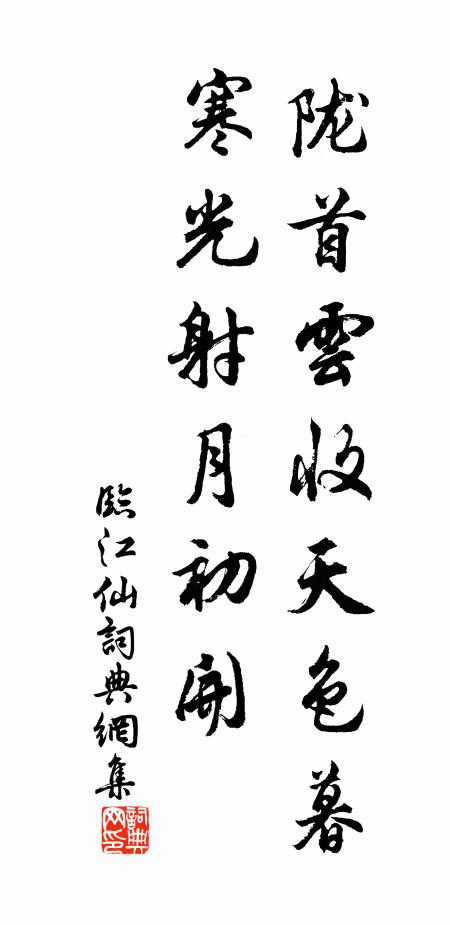 陇首雲收天色暮
寒光射月初開
臨江仙詞典網集
詞典
网印